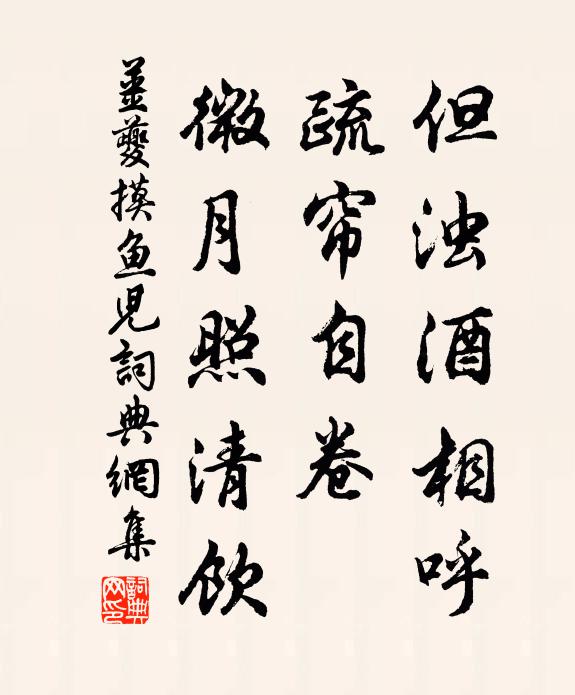 但浊酒相呼
疏帘自卷
微月照清饮
姜夔摸鱼儿詞典網集
詞典网印